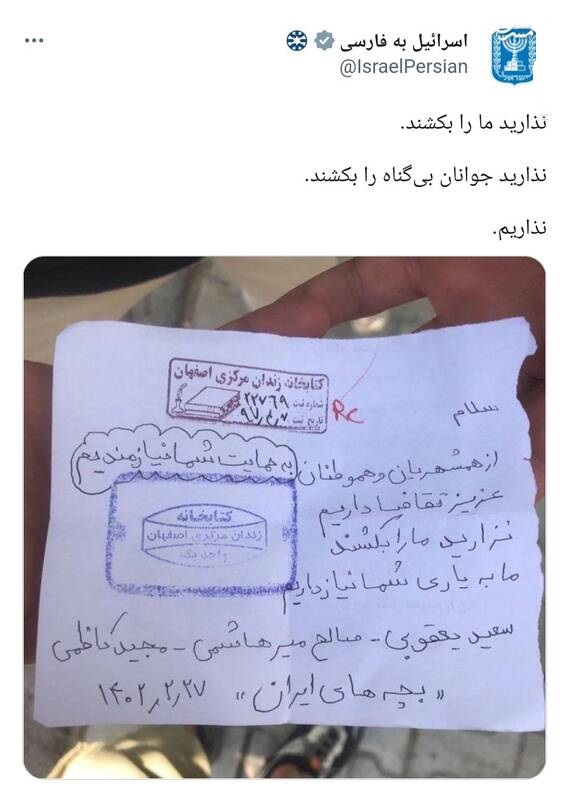 اسرائیل به فارسی
@IsraelPersian
نذارید ما را بکشند.
نذارید جوانان بی‌گناه را بکشند.
نذاریم.
کتابخانه زندان مرکزی اصفهان
شماره ثبت ۲۲۷۶۹
تاریخ ثبت ۹۷٫۴٫۷
RC
سلام
از همشهریان و هموطنان به حمایت شما نیازمندیم
عزیز تقاضا داریم
نزارید ما را بکشند
ما به یاری شما نیاز داریم
کتابخانه
زندان مرکزی اصفهان
واحد یک
سعید یعقوبی - صالح میرهاشمی - مجید کاظمی
«بچه های ایران» ۱۴۰۲٫۲٫۲۷